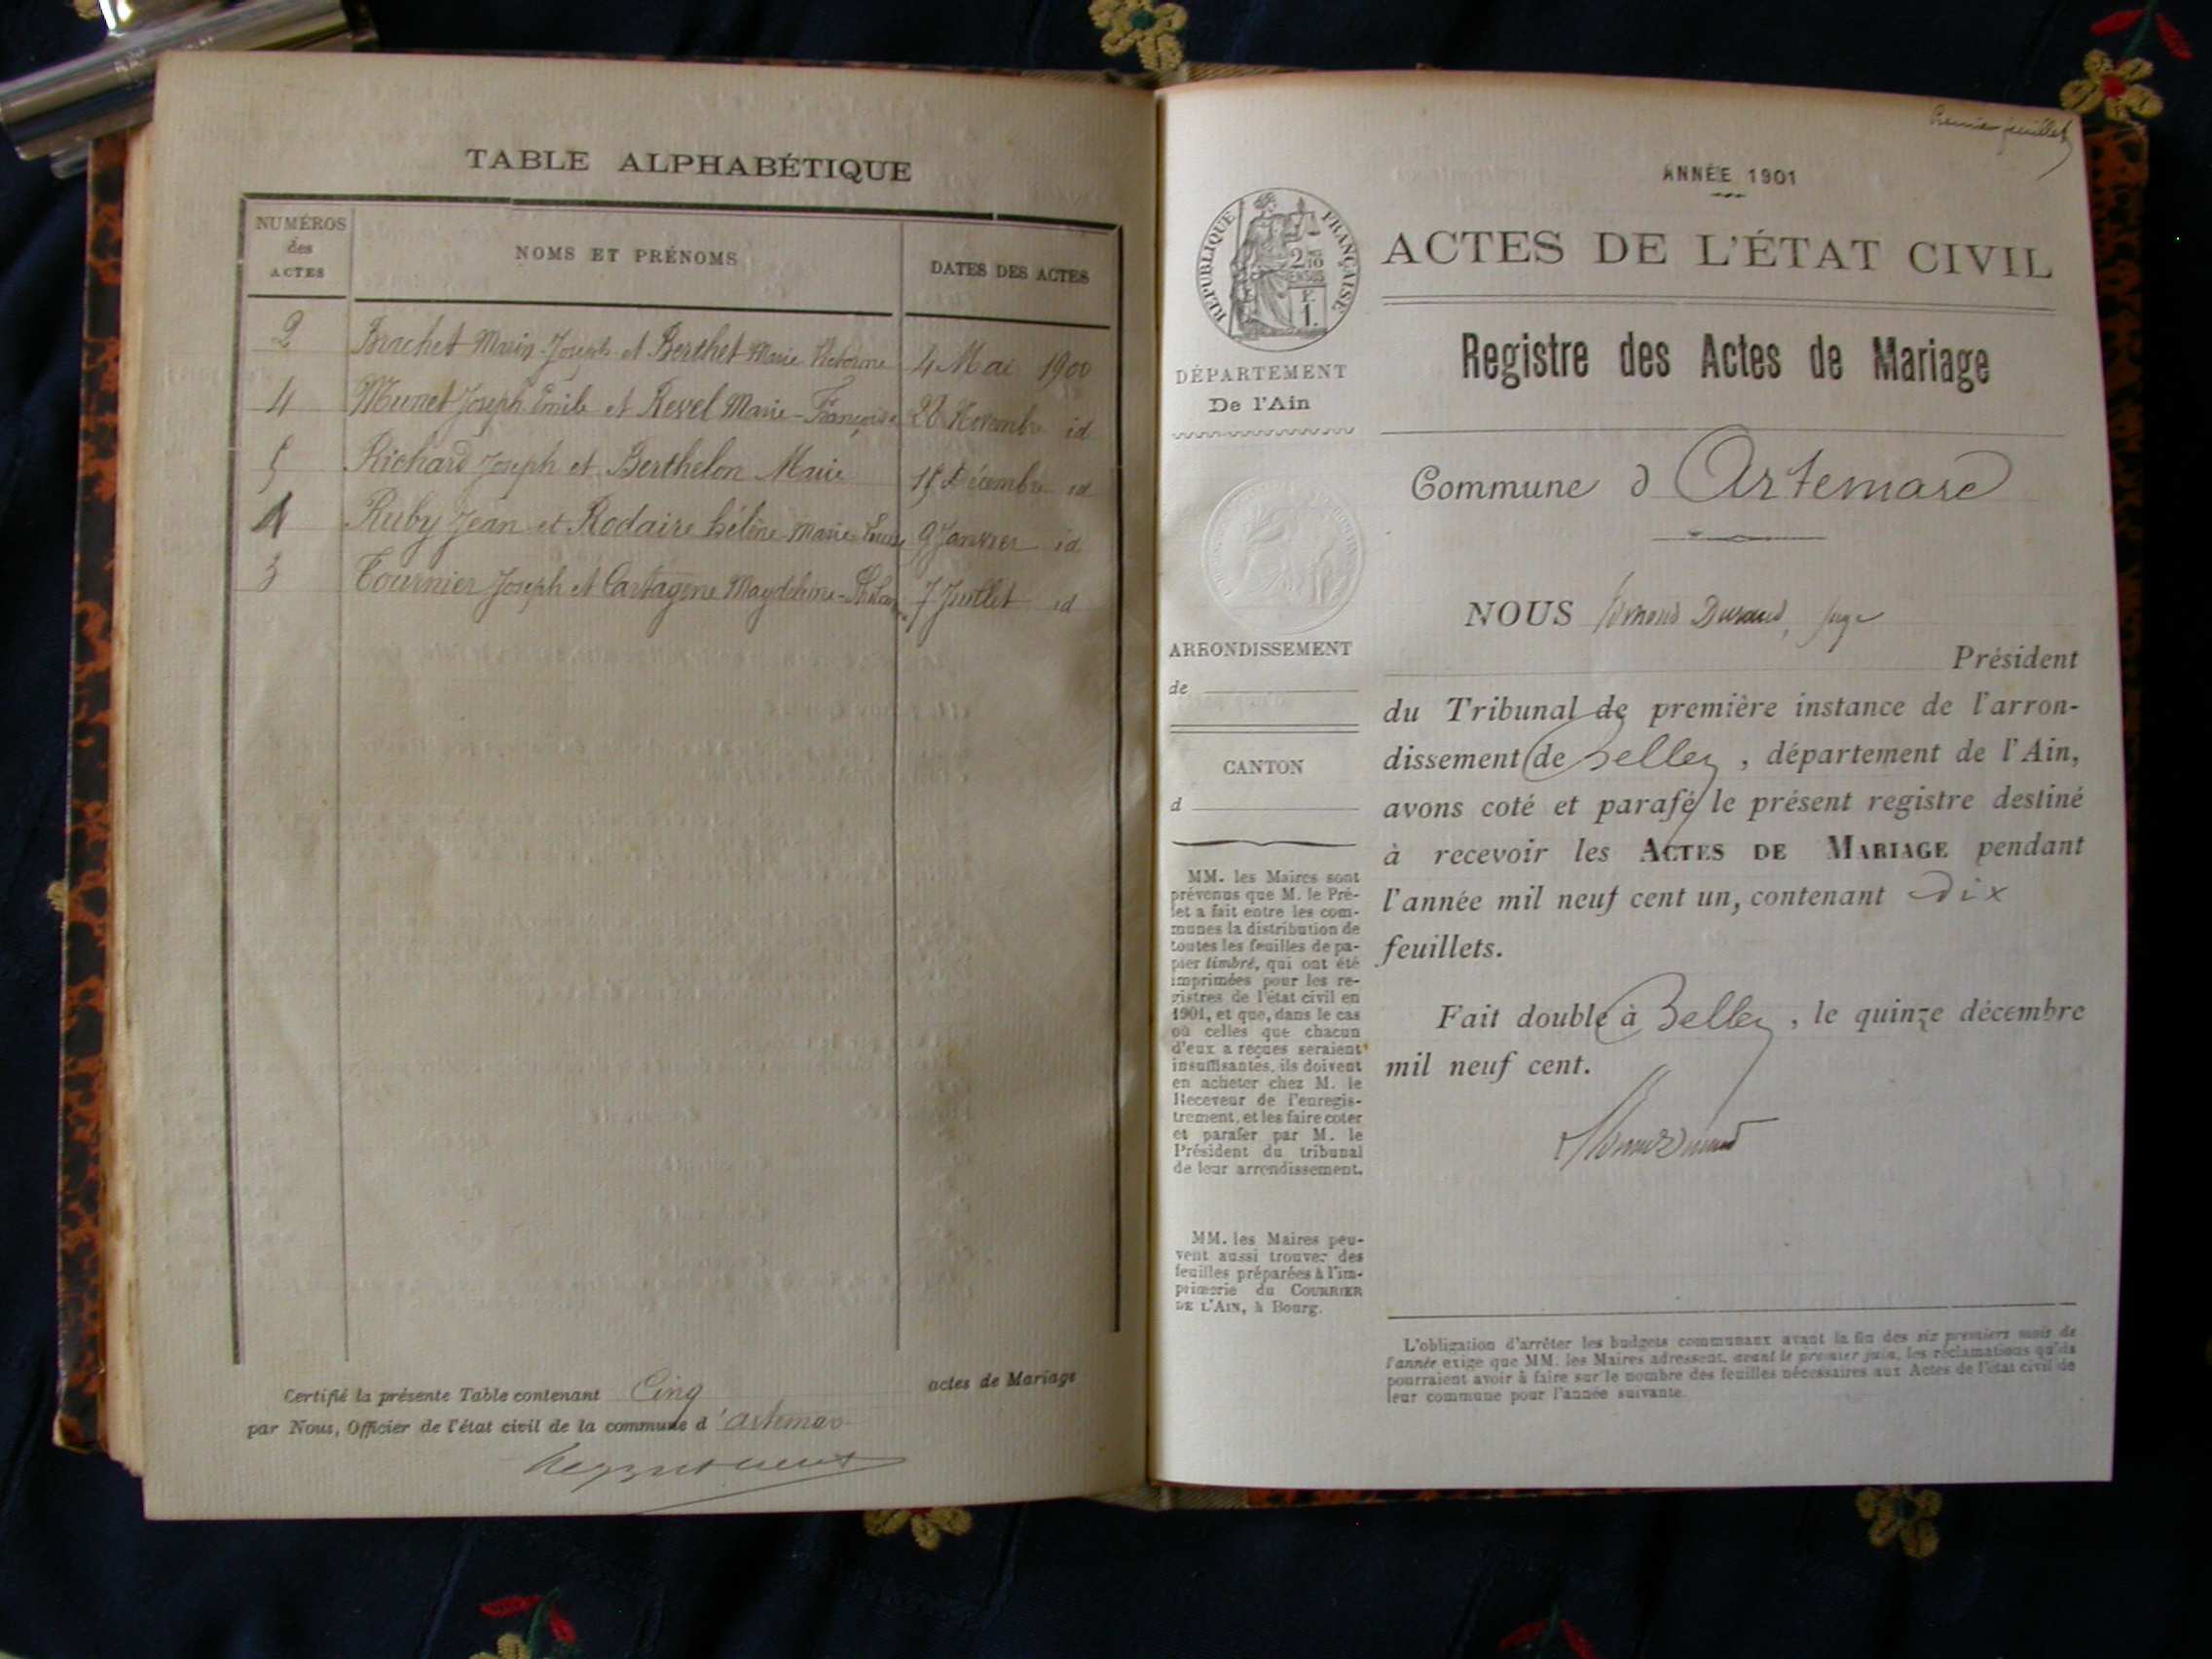 TABLE ALPHABÉTIQUE
NUMÉROS
des
ACTES
NOMS ET PRÉNOMS
DATES DES ACTES
2 Brachet Marin Joseph et Berthet Marie 4 Mai 1900
4 Munet Joseph Emile et Revel Marie-Françoise Novembre id
5 Richard Joseph et Berthelon Marie 15 Décembre id
1 Ruby Jean et Rodaire Hélène Marie 9 Janvier id
3 Tournier Joseph et Cartagène 7 Juillet id
Certifié la présente Table contenant Cinq actes de Mariage
par Nous, Officier de l'état civil de la commune d'Artemare
Premier feuillet
ANNÉE 1901
RÉPUBLIQUE FRANÇAISE
ACTES DE L'ÉTAT CIVIL
Registre des Actes de Mariage
DÉPARTEMENT
De l'Ain
Commune d Artemare
NOUS Durand, juge
Président
du Tribunal de première instance de l'arron-
dissement de Belley, département de l'Ain,
avons coté et parafé le présent registre destiné
à recevoir les ACTES DE MARIAGE pendant
l'année mil neuf cent un, contenant dix
feuillets.
Fait double à Belley, le quinze décembre
mil neuf cent.
ARRONDISSEMENT
de
CANTON
d
MM. les Maires sont
prévenus que M. le Pré-
fet a fait entre les com-
munes la distribution de
toutes les feuilles de pa-
pier timbré, qui ont été
imprimées pour les re-
gistres de l'état civil en
1901, et que, dans le cas
où celles que chacun
d'eux a reçues seraient
insuffisantes, ils doivent
en acheter chez M. le
Receveur de l'enregis-
trement, et les faire coter
et parafer par M. le
Président du tribunal
de leur arrondissement.
MM. les Maires peu-
vent aussi trouver des
feuilles préparées à l'im-
primerie du COURRIER
DE L'AIN, à Bourg.
L'obligation d'arrêter les budgets communaux avant la fin des six premiers mois de
l'année exige que MM. les Maires adressent, avant le premier juin, les réclamations qu'ils
pourraient avoir à faire sur le nombre des feuilles nécessaires aux Actes de l'état civil de
leur commune pour l'année suivante.